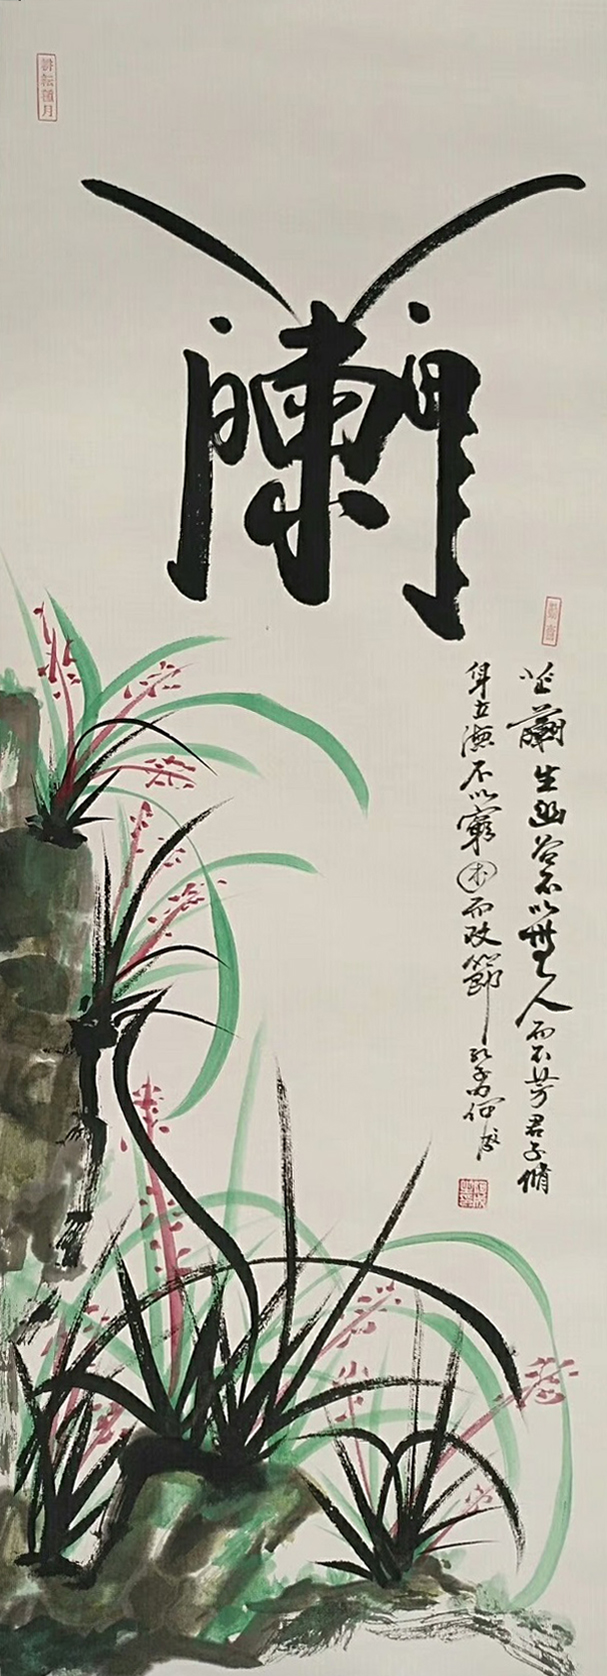 蘭
芷蘭生幽谷不以無人而不芳君子脩
身立德不以窮困而改節